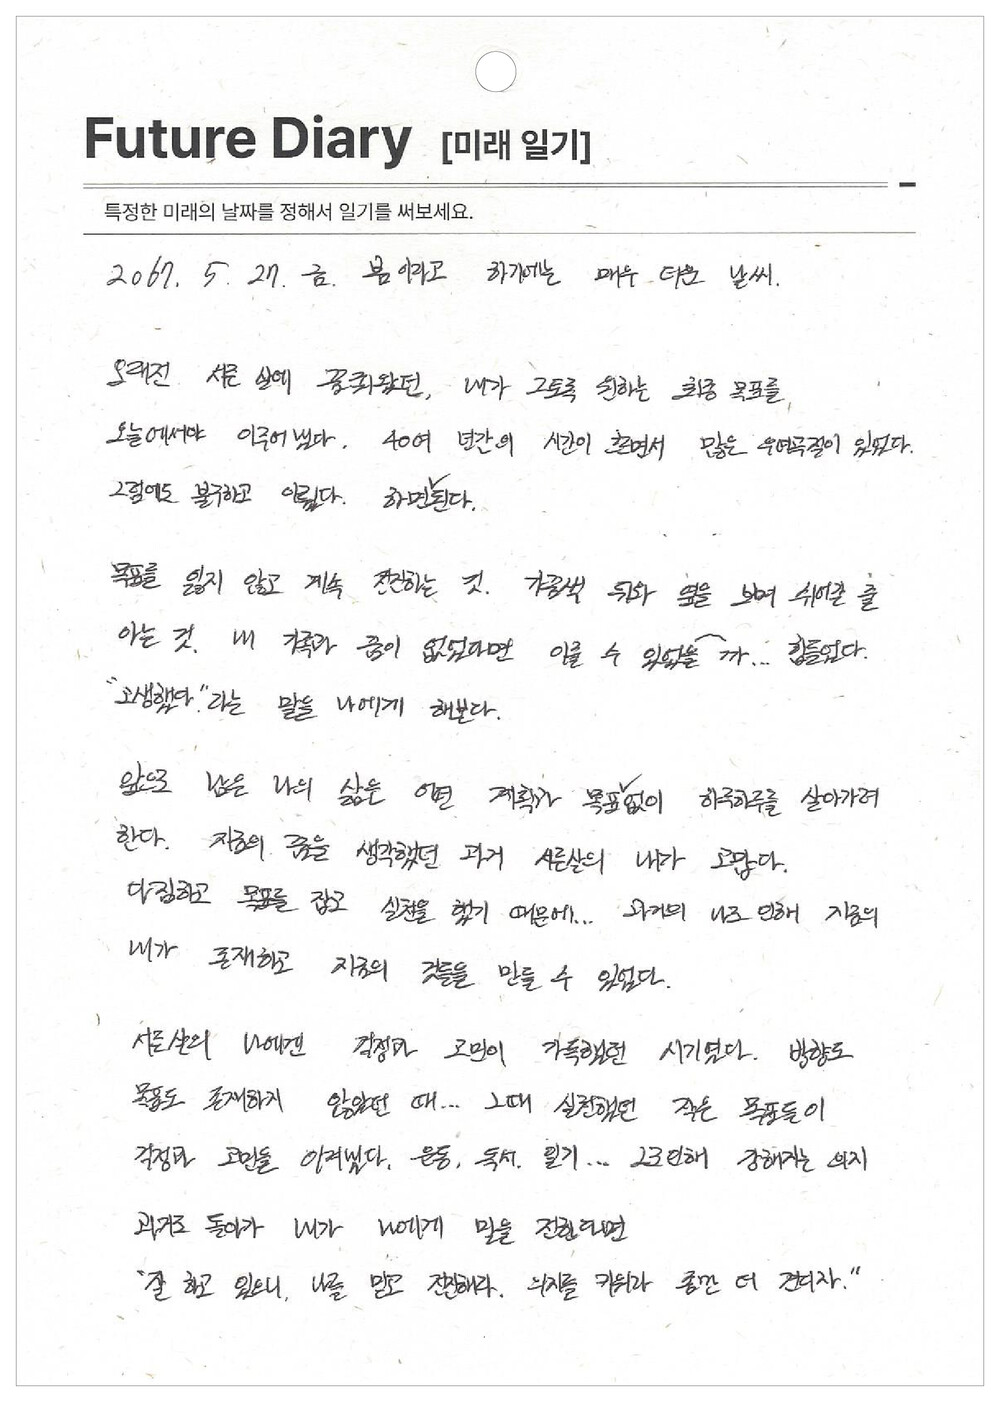 Future Diary [미래 일기]
특정한 미래의 날짜를 정해서 일기를 써보세요.
2067. 5. 27. 금. 봄이라고 하기에는 매우 더운 날씨.
오래전 서른 살에 꿈꿔왔던, 내가 그토록 원하는 최종 목표를
오늘에서야 이루어냈다. 40여 년간의 시간이 흐르면서 많은 우여곡절이 있었다.
그럼에도 불구하고 이뤘다. 하면 된다.
목표를 잃지 않고 계속 전진하는 것. 가끔씩 뒤와 옆을 보며 쉬어갈 줄
아는 것. 내 가족과 꿈이 없었다면 이룰 수 있었을까... 힘들었다.
"고생했다."라는 말을 나에게 해본다.
앞으로 남은 나의 삶은 어떤 계획과 목표 없이 하루하루를 살아가려
한다. 지금의 꿈을 생각했던 과거 서른살의 내가 고맙다.
다짐하고 목표를 잡고 실천을 했기 때문에... 과거의 나로 인해 지금의
내가 존재하고 지금의 것들을 만들 수 있었다.
서른살의 나에겐 걱정과 고민이 가득했던 시기였다. 방향도
목표도 존재하지 않았던 때... 그때 실천했던 작은 목표들이
걱정과 고민들 이겨냈다. 운동, 독서, 일기... 그로인해 강해지는 의지
과거로 돌아가 내가 나에게 말을 전한다면
"잘 하고 있으니, 나를 믿고 전진해라. 의지를 키워라 좀만 더 견디자."